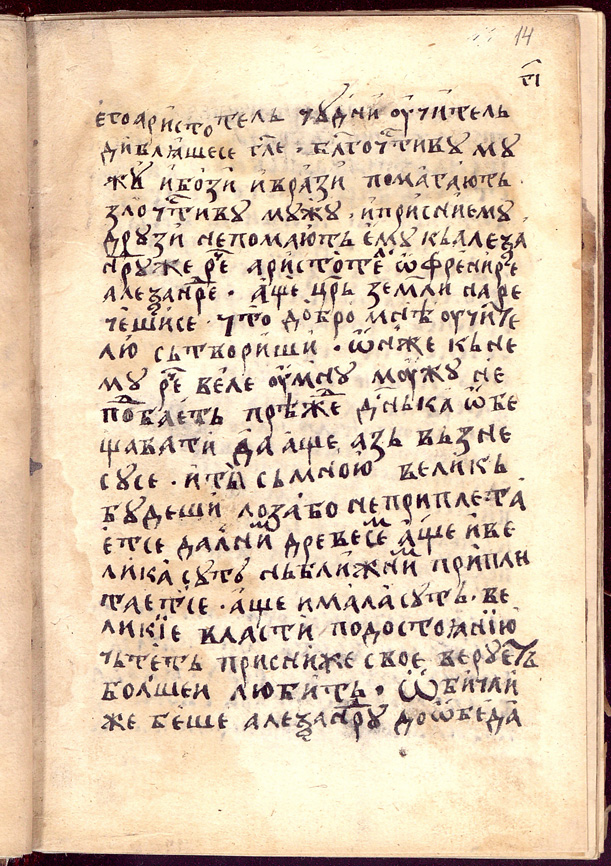 14
гі
его аристотель чꙋдни оучитель
дивлꙗшесе гл҃е · блг҃очⷭ҇тивꙋ мꙋ
жꙋ и бози и врази помагають ·
злочⷭ҇тивꙋ мꙋжꙋ · и приснїемꙋ
дрꙋзи непомають емꙋ кь алеѯа
нⷣрꙋ же реⷱ҇ аристотеⷧ ѿ
алеѯанⷣре · аще цр҃ь земли наре
чешисе · что добро мнѣ оучите
лю сьтвориши · ѡнже кь не
мꙋ реⷱ҇ веле оумнꙋ моужꙋ не
поⷣбаеть прѣжⷣе днька ѡбе
щавати да аще азь вьзне
сꙋсе · и ти сьмною великь
бꙋдеши лозабо неприплета
етсе далнїиⷨ древесеⷨ аще и ве
лика сꙋть нь ближнїиⷨ припле
таетсе · аще и мала сꙋть · ве
ликїе власти подостоꙗнїю
чьтеть присниже свое верꙋеть
болшеи любить · ѡбичаи
же беше алеѯанⷣрꙋ до ѡбеда